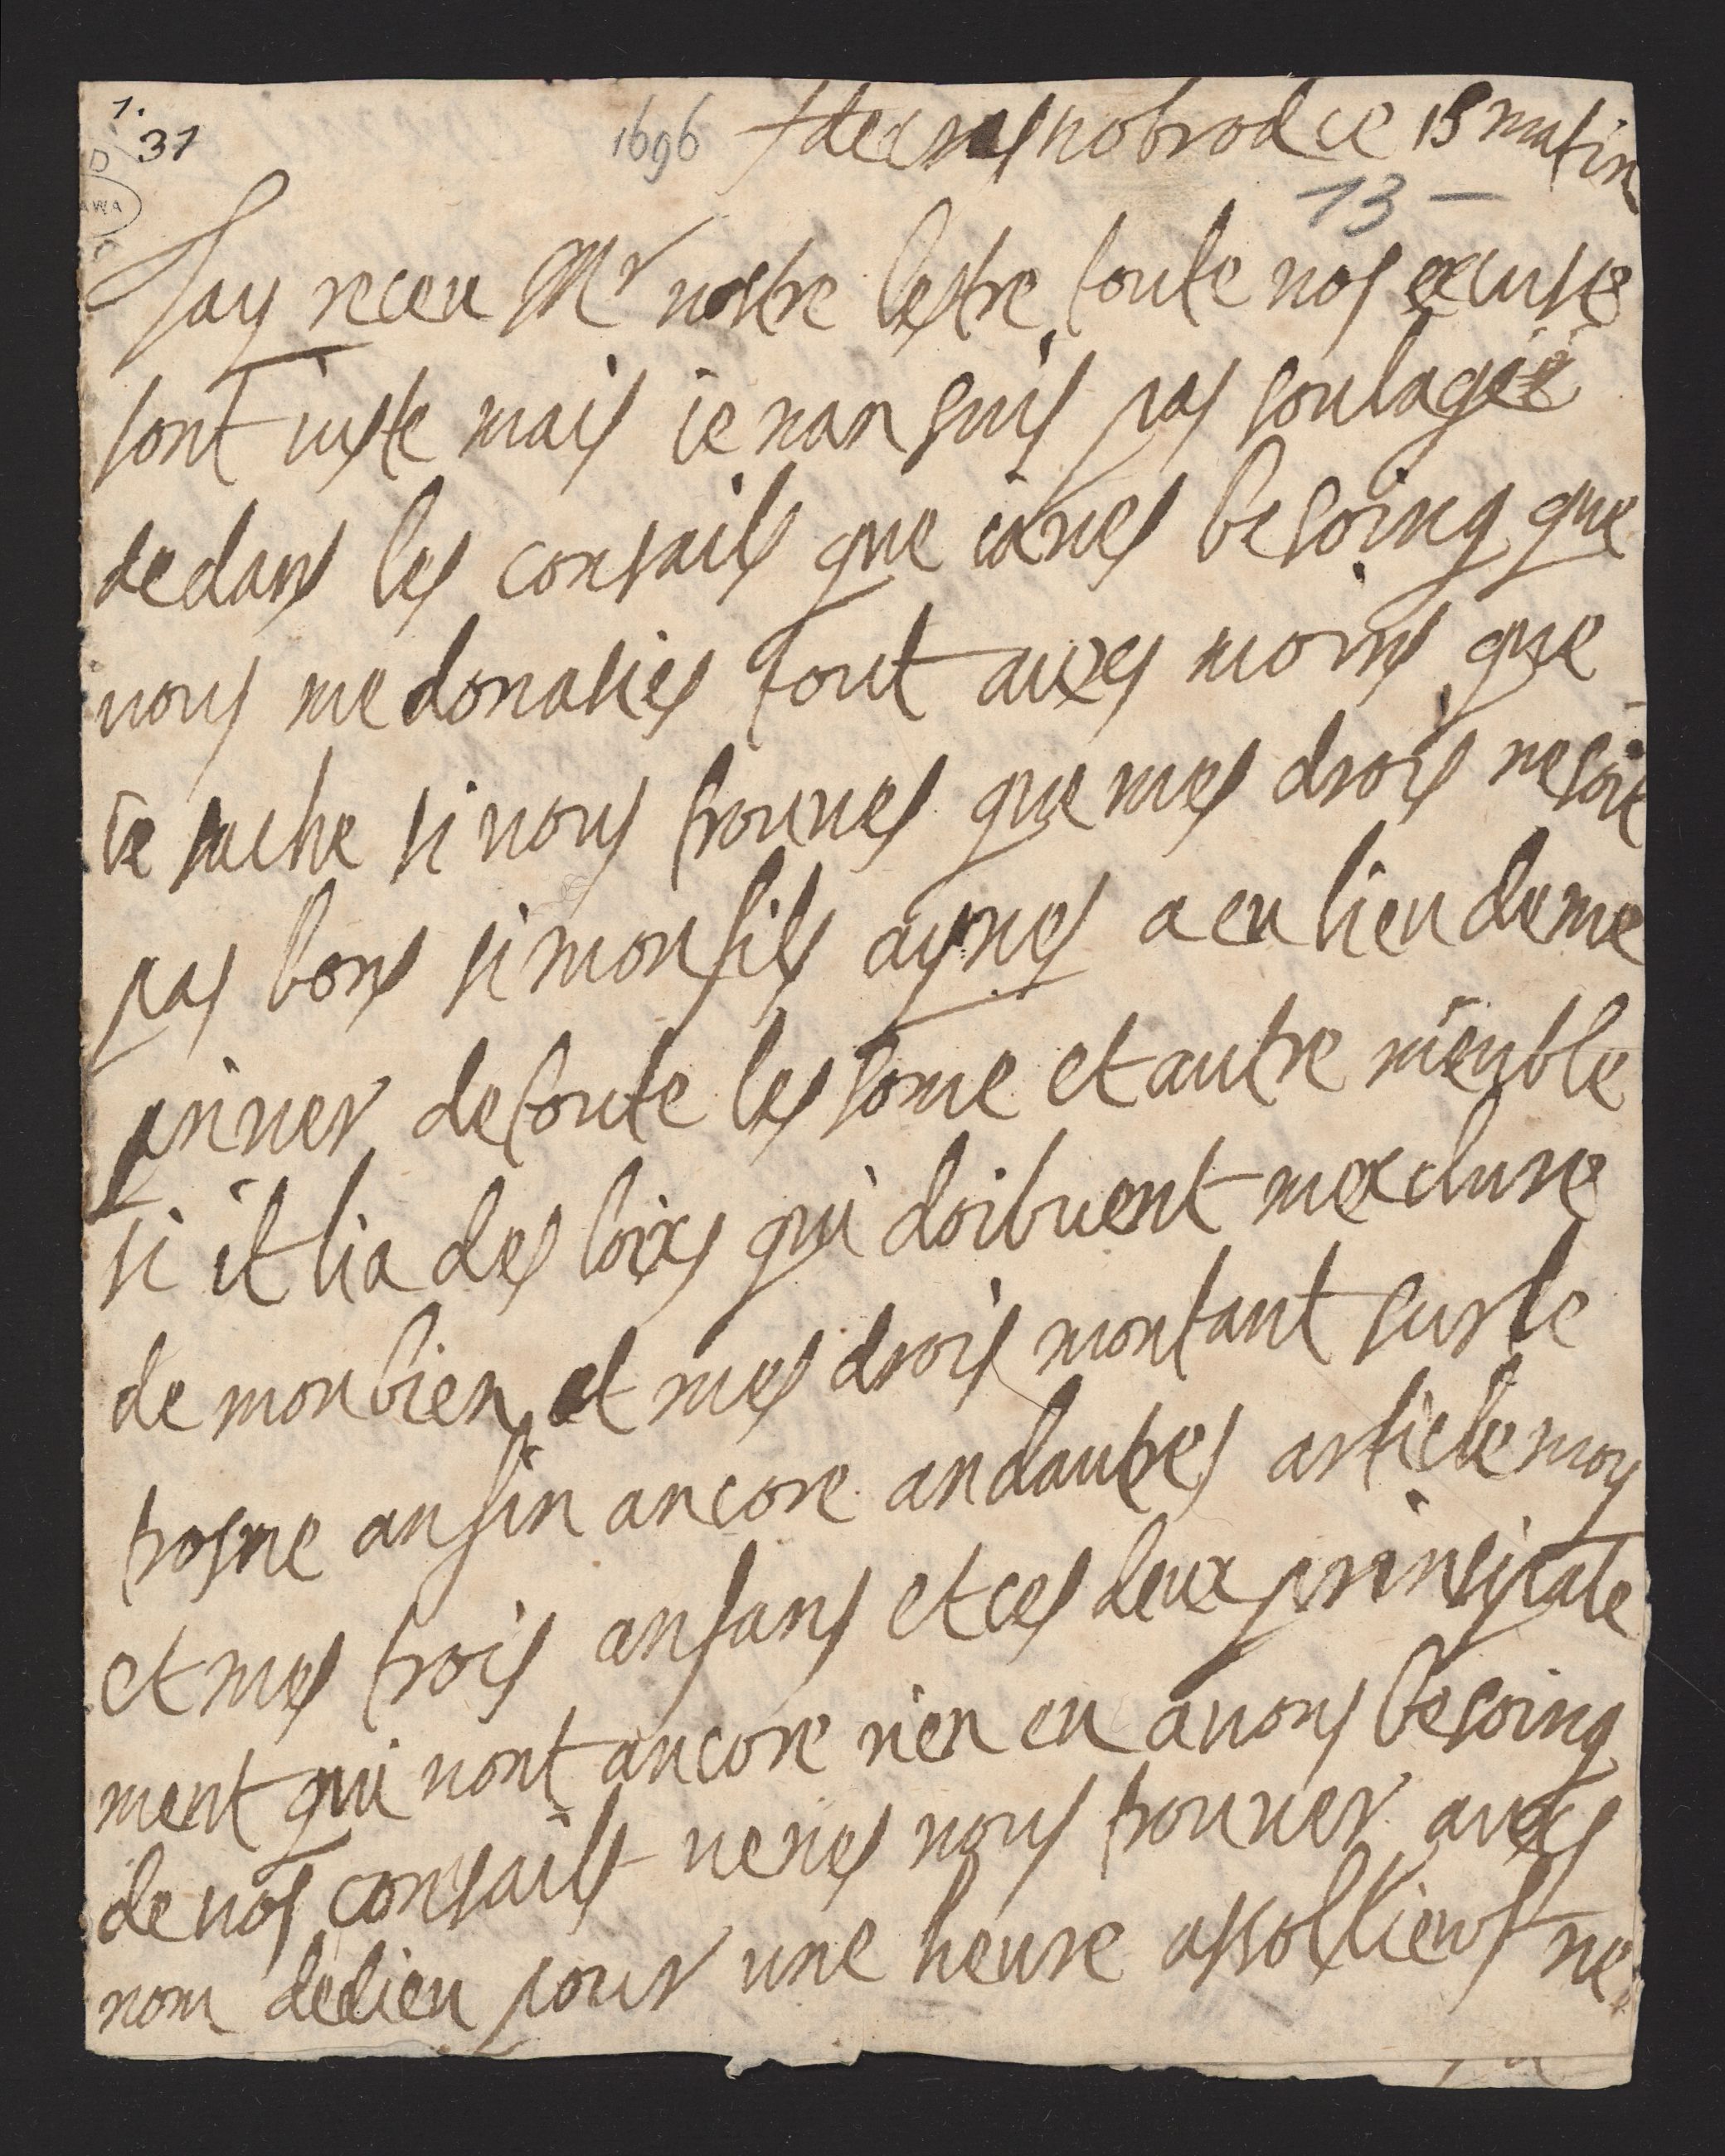 1.
31
1696 de crasnobrod ce 15 matin
13 —
Jay receu Mr vostre lestre toute vos excuse
sont iuste mais ie nan suis pas soulagéé
dedans les consails que iaves besoing que
vous me donasies tout auxs moins que
ie sache si vous trouves que mes drois ne soit
pas bons si mon fils aynes a eu lieu de me
priver de toute les some et autre meuble
si it lia des loixs qui doibvent mexclure
de mon bien et mes drois montant sur le
trosne anfin ancore an dautres article moy
et mes trois anfans et ces deux prinsipale
ment qui nont ancore rien eu avons besoing
de vos consails venes nous trouver auxs
nom de dieu pour une heure assollieus ne